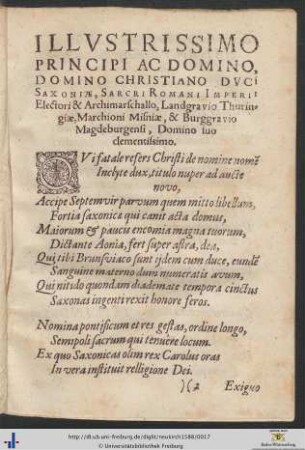 ILLVSTRISSIMO
PRINCIPI AC DOMINO,
DOMINO CHRISTIANO DVCI
SAXONIÆ, SARCRI ROMANI IMPERII
Electori & Archimarschallo, Landgravio Thurin-
giæ, Marchioni Misniæ, & Burggravio
Magdeburgensi, Domino suo
clementissimo.
QVi fatale refers Christi de nomine nomẽ
Inclyte dux, titulo nuper ad aucte
novo,
Accipe Septemvir parvum quem mitto libellum,
Fortia saxonica qui canit acta domus,
Maiorum & paucu encomia magna tuorum,
Dictante Aonia, fert super astra, dea,
Qui tibi Brunsviaco sunt ijdem cum duce, eundẽ
Sanguine materno dum numeratis avum,
Qui nitido quondam diademate tempora cinctus
Saxonas ingenti rexit honore feros.
Nomina pontificum et res gestas, ordine longo,
Semipoli sacrum qui tenuere locum.
Ex quo Saxonicas olim rex Carolus oras
In vera instituit relligione Dei.
)(2 Exiguo
http://dl.ub.uni-freiburg.de/diglit/neukirch1588/0017
© Universitätsbibliothek Freiburg
Baden-Württemberg